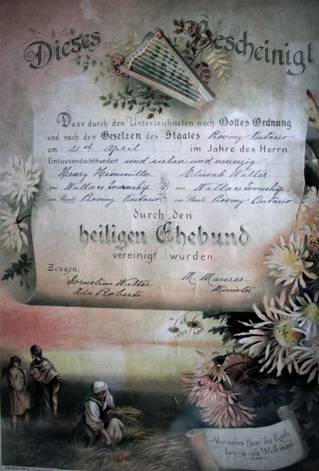 Dieses Bescheinigt
Dass durch den Unterzeichneten nach Gottes Ordnung
und nach den Gesetzen des Staates Roving Ontario
am 21st April im Jahre des Herrn
Eintausendachthundert und sieben und neunzig
Henry Hemmiller Elisab Walter
von Wallace Township von Wallace Township
im Staate Roving Ontario im Staate Roving Ontario
durch den
heiligen Ehebund
vereinigt wurden.
Zeugen: M. Maurer
Cornelius Walter Minister
Ada Roberts